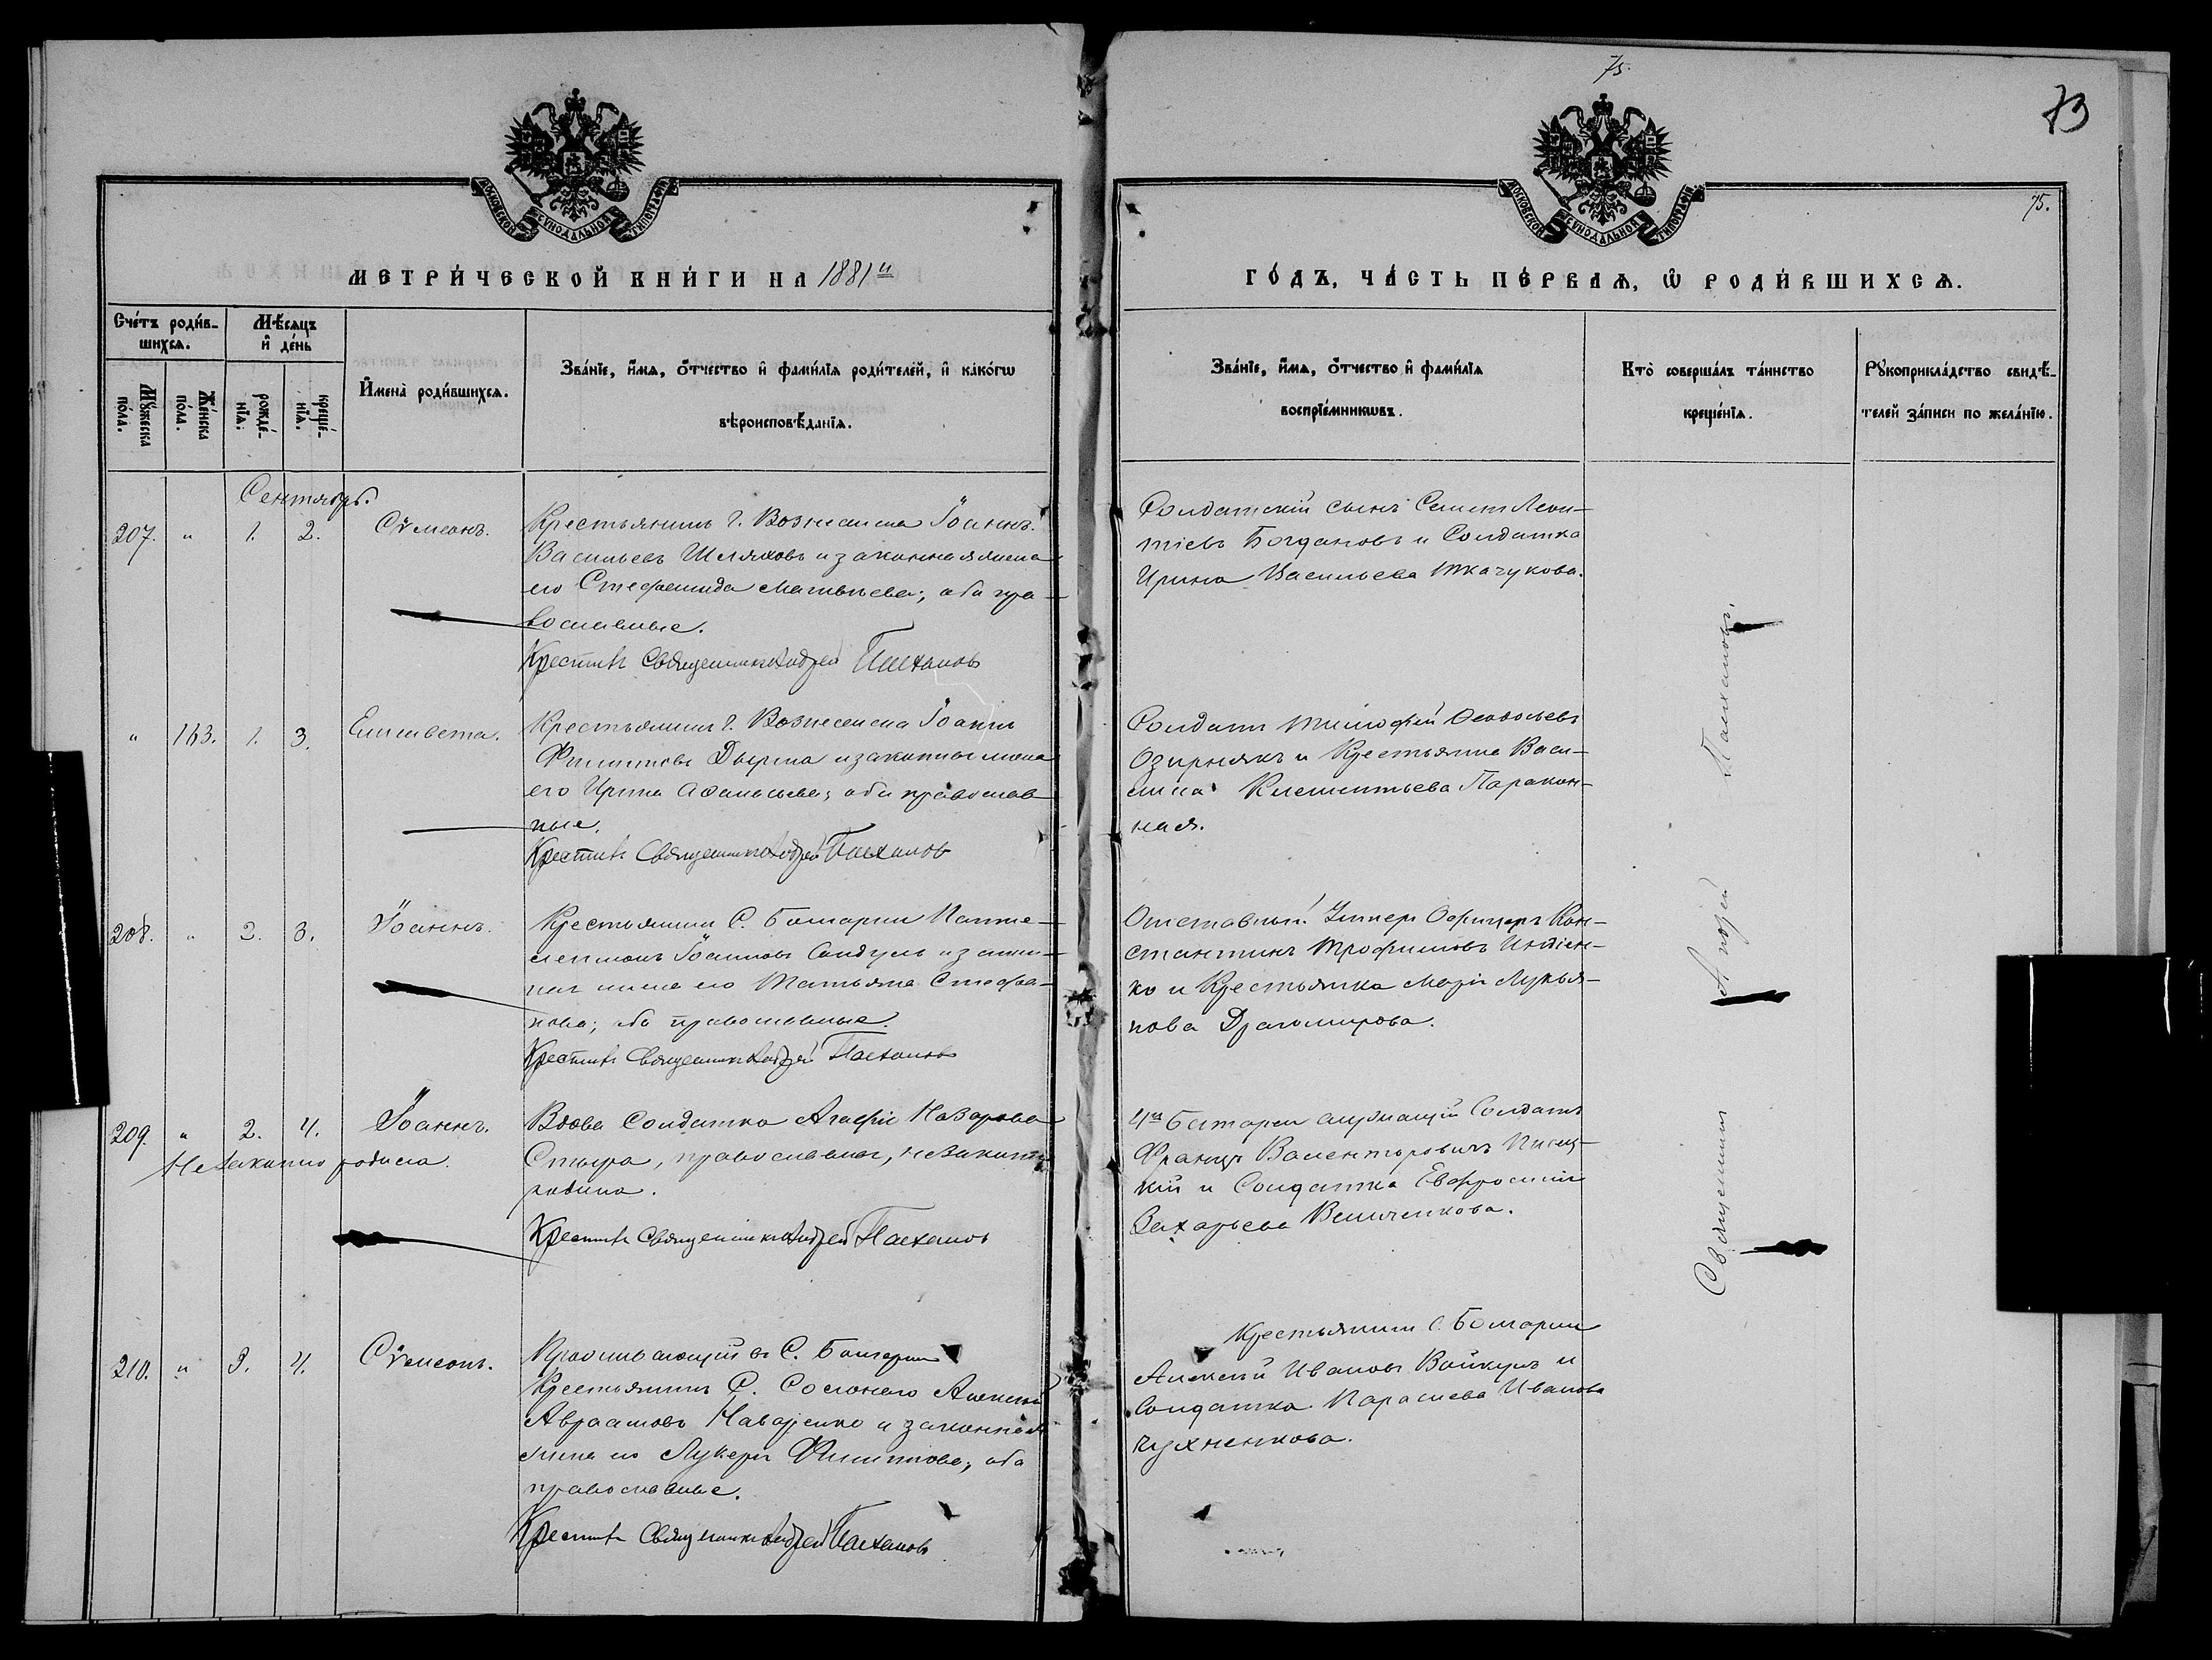 75.
73
МОСКОВСКОЙ СѴНОДАЛЬНОЙ ТИПОГРАФІИ
МОСКОВСКОЙ СѴНОДАЛЬНОЙ ТИПОГРАФІИ
75.
МЕТРИ́ЧЕСКОЙ КНИ́ГИ НА 1881й
ГО́ДЪ, ЧА́СТЬ ПЕ́РВАѦ, Ѡ РОДИ́ВШИХСѦ.
Сче́тъ роди́в-
шихсѧ.
Мꙋ́жеска по́ла.
Же́нска по́ла.
Мѣ́сяцъ
и҆ де́нь
рожде́-
нїѧ.
креще́-
нїѧ.
И҆мена̀ роди́вшихсѧ.
Зва́нїе, и҆́мѧ, ѻ҆́тчество и҆ фами́лїѧ роди́телей, и҆ како́гѡ
вѣроисповѣ́данїѧ.
Зва́нїе, и҆́мѧ, ѻ҆́тчество и҆ фами́лїѧ
воспрїе́мникѡвъ.
Кто̀ соверша́лъ та́инство
креще́нїѧ.
Рꙋкоприкла́дство свидѣ́-
телей за́писи по жела́нїю.
Сентябрь.
207. " 1. 2. Сѵмеонъ.
Крестьянинъ г. Вознесенска Іоаннъ
Васильевъ Шляховъ и законная жена
его Стефанида Матвѣева; оба пра-
вославные.
Крестилъ Священникъ Андрей Плехановъ
Солдатскій сынъ Семенъ Леон-
тіевъ Богдановъ и Солдатка
Ирина Васильева Ткачукова.
" 163. 1. 3. Елисавета.
Крестьянинъ г. Вознесенска Іоаннъ
Филипповъ и законная жена
его Ирина Афанасьева; оба православ
ные.
Крестилъ Священникъ Андрей Плехановъ
Солдатъ Тимофей
Озирнякъ и Крестьянка Васи-
лиса Клементьева Паракон-
ная.
208. " 2. 3. Іоаннъ.
Крестьянинъ С. Болгарки Панте-
леимонъ Іоанновъ Сандулъ и закон-
ная жена его Татьяна Стефа-
нова; оба православные.
Крестилъ Священникъ Андрей Плехановъ
Отставный Унтеръ Офицеръ Кон-
стантинъ Трофимовъ
ко и Крестьянка Марія Лукья-
нова Драгомирова.
209. " 2. 4. Іоаннъ.
Незаконно родился.
Вдова Солдатка Агафія Назарова
православная, незаконно
родила.
Крестилъ Священникъ Андрей Плехановъ
4й Батареи служащій Солдатъ
Францъ
кій и Солдатка Евфросинія
Захарьева Величенкова.
210. " 3. 4. Сѵмеонъ.
Проживающій въ С. Болгарки
Крестьянинъ С. Солонего Алексей
Авраамовъ и законная
жена его Лукерія Филиппова; оба
православные.
Крестилъ Священникъ Андрей Плехановъ
Крестьянинъ С. Болгарки
Алексей Ивановъ Войкулъ и
Солдатка Параскева Иванова
Чухненкова.
Священникъ Андрей Плехановъ.